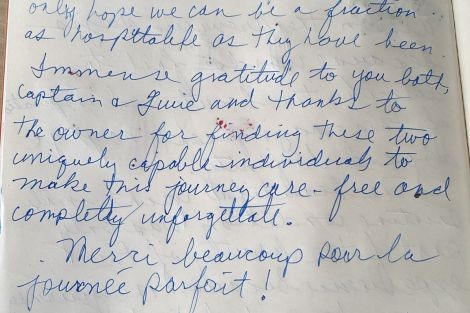 only hope we can be a fraction
as hospttalife as they have been.
Immense gratitude to you both,
Captain & and thanks to
the owner for finding these two
uniquely capable individuals to
make this journey care-free and
completly unforgettate.
Merci beaucoup pour la
journée parfait!